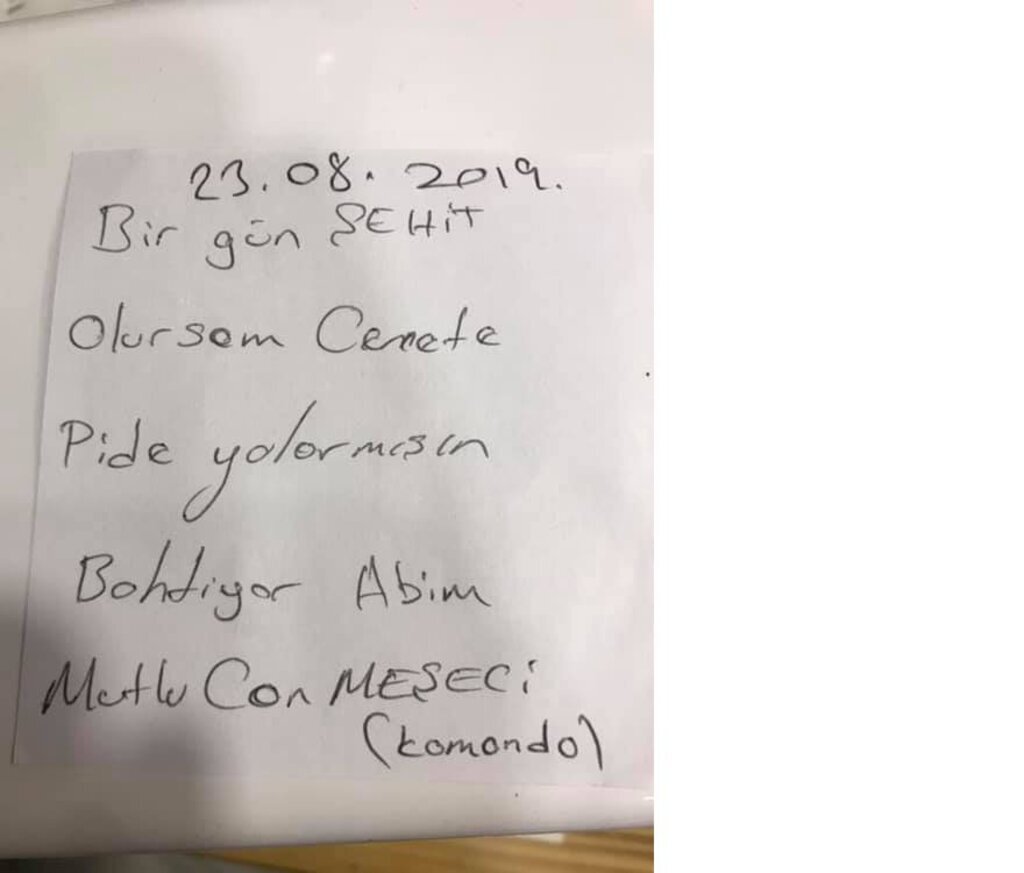 23.08.2019.
Bir gün ŞEHİT
Olursam Cenete
Pide yolarmısın
Bahtiyar Abim
Mutlu Can MEŞECİ
(komando)